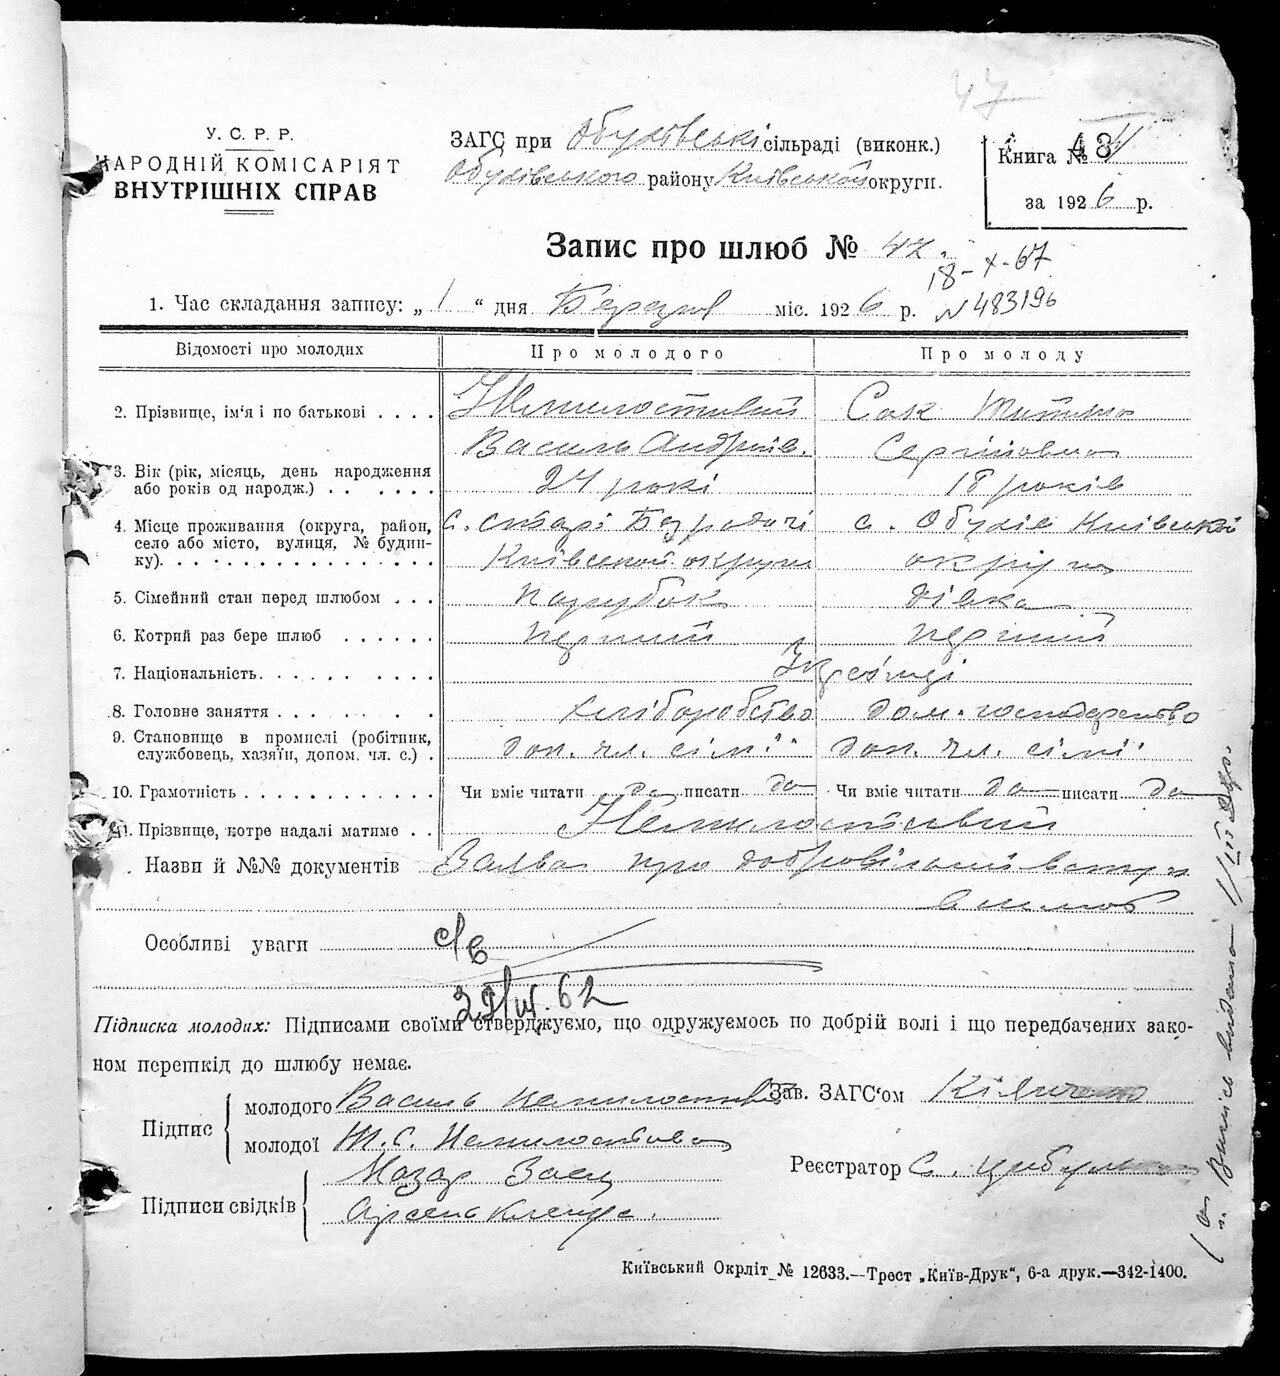 47
У. С. Р. Р.
НАРОДНІЙ КОМІСАРІЯТ
ВНУТРІШНІХ СПРАВ
ЗАГС при Обухівські сільраді (виконк.)
Обухівського району Київської округи.
Книга № 43
за 1926 р.
Запис про шлюб № 47.
18-X-67
N 483196
1. Час складання запису: „1“ дня Березня міс. 1926 р.
Відомості про молодих Про молодого Про молоду
2. Прізвище, ім'я і по батькові . . . . Немилостивий Сак Титяна
Василь Андріїв. Сергіївна
3. Вік (рік, місяць, день народження
або років од народж.) . . . . . . 24 рокі 18 років
4. Місце проживання (округа, район,
село або місто, вулиця, № будин-
ку). . . . . . . . . . . . . . . .
с. старі Безрадичі с. Обухів Київської
Київської округи округи
5. Сімейний стан перед шлюбом . . . парубок дівка
6. Котрий раз бере шлюб . . . . . . перший перший
7. Національність. . . . . . . . . . Українці
8. Головне заняття . . . . . . . . хліборобство дом. господарство
9. Становище в промислі (робітник,
службовець, хазяїн, допом. чл. с.) . доп. чл. сімї доп. чл. сімї
10. Грамотність . . . . . . . . . . . Чи вміє читати да писати да Чи вміє читати да писати да
11. Прізвище, котре надалі матиме . . Немилостивий
Назви й №№ документів Заява про добровільний вступ
в шлюб
Особливі уваги с/в
62
Підписка молодих: Підписами своїми стверджуємо, що одружуємось по добрій волі і що передбачених зако-
ном перешкід до шлюбу немає.
Підпис
молодого Василь Немилостивий
молодої Т. С. Немилостива
Зав. ЗАГС'ом
Реєстратор С.
Підписи свідків
Назар Заєц
Арсень
Київський Окрліт № 12633.—Трест „Київ-Друк“, 6-а друк.—342-1400.
Випись видано